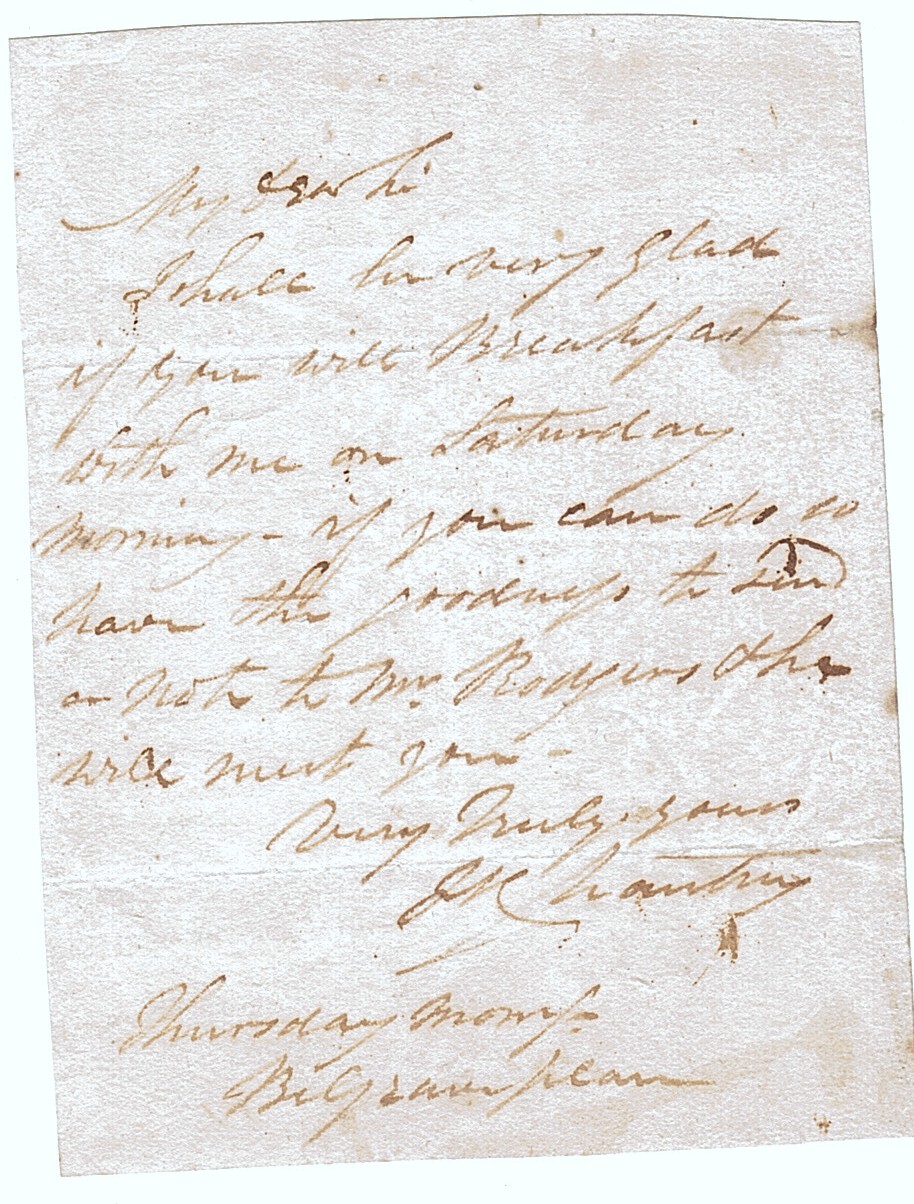 My dear Sir
I shall be very glad
if you will Breakfast
with me on Saturday
morning - if you can do so
have the goodness to send
a note to Mr. Rodgers & he
will meet you -
Very Truly yours
F Chantrey
Thursday morng
Belgrave place